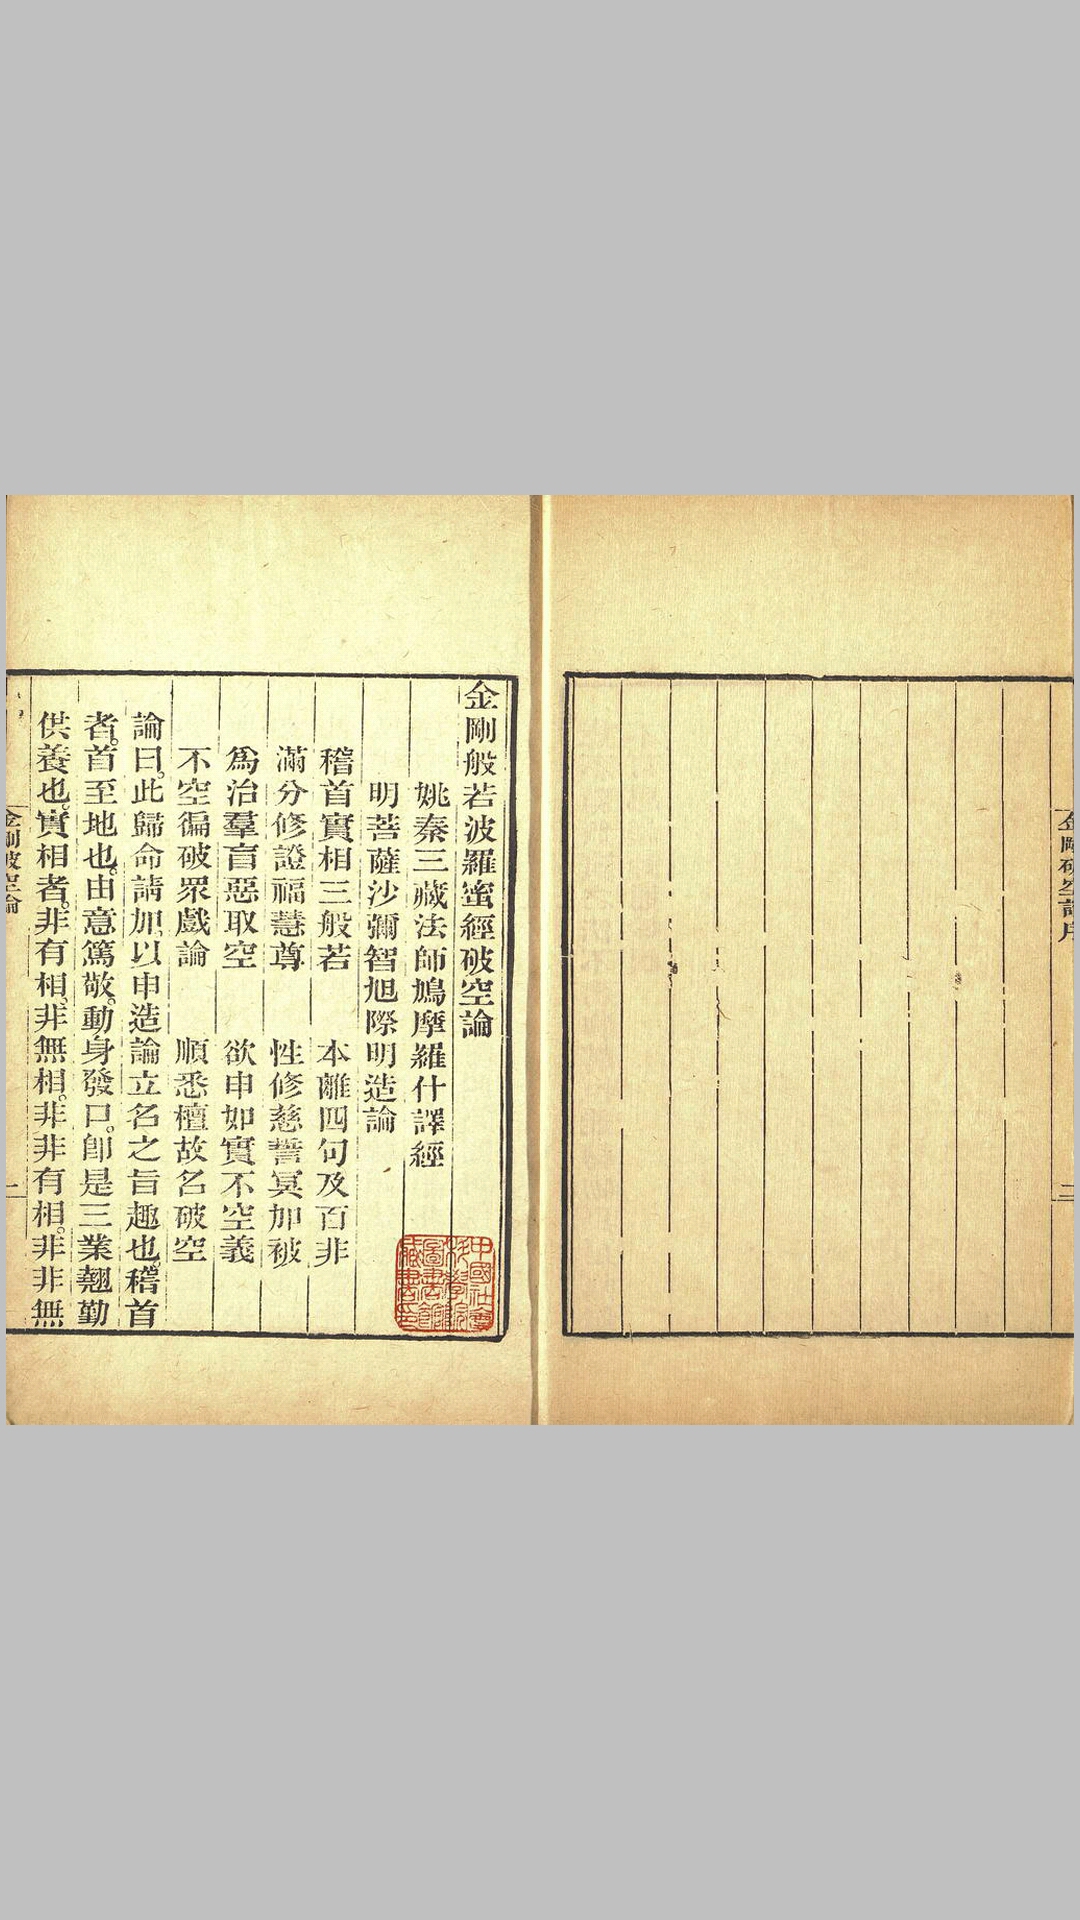 金剛破空論序
二
金剛般若波羅蜜經破空論
姚秦三藏法師鳩摩羅什譯經
明菩薩沙彌智旭際明造論
稽首實相三般若 本離四句及百非
滿分修證福慧尊 性修慈誓冥加被
爲治羣盲惡取空 欲申如實不空義
不空徧破眾戲論 順悉檀故名破空
論曰。此歸命請加。以申造論立名之旨趣也。稽首
者。首至地也。由意篤敬。動身發口。卽是三業翹勤
供養也。實相者。非有相。非無相。非非有相。非非無
金剛破空論
一
中國社會
科學院
圖書館
藏書印